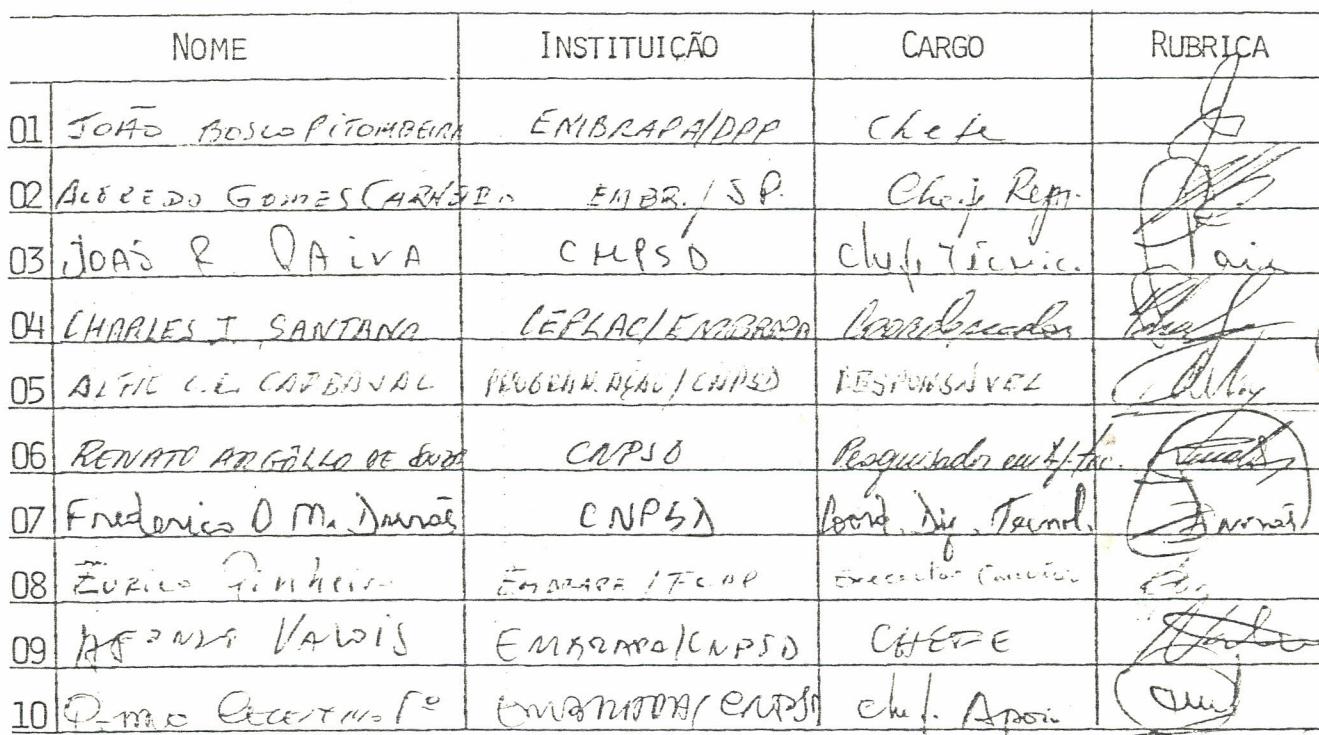 NOME INSTITUIÇÃO CARGO RUBRICA
01 JOÃO BOSCO PITOMBEIRA EMBRAPA/DPP Chefe
02 ALFREDO GOMES CARNEIRO EMBR./SP. Chefe Rep.
03 JOÃO R PAIVA CNPSD Chefe Técnic. Paiva
04 CHARLES J. SANTANA CEPLAC/EMBRAPA Coordenador
05 ALTIC C.L. CARBAJAL PROGRAMAÇÃO/CNPSD RESPONSÁVEL
06 RENATO ARGÔLLO DE SOUZA CNPSD Pesquisador em
07 Frederico O M. Durães CNPSD Coord. Dif. Tecnol. Durães
08 Eurico Pinheiro EMBRAPA/FCAP Executor Convênio
09 AFONSO VALOIS EMBRAPA/CNPSD CHEFE
10 EMBRAPA/CNPSD Chef. Apoio